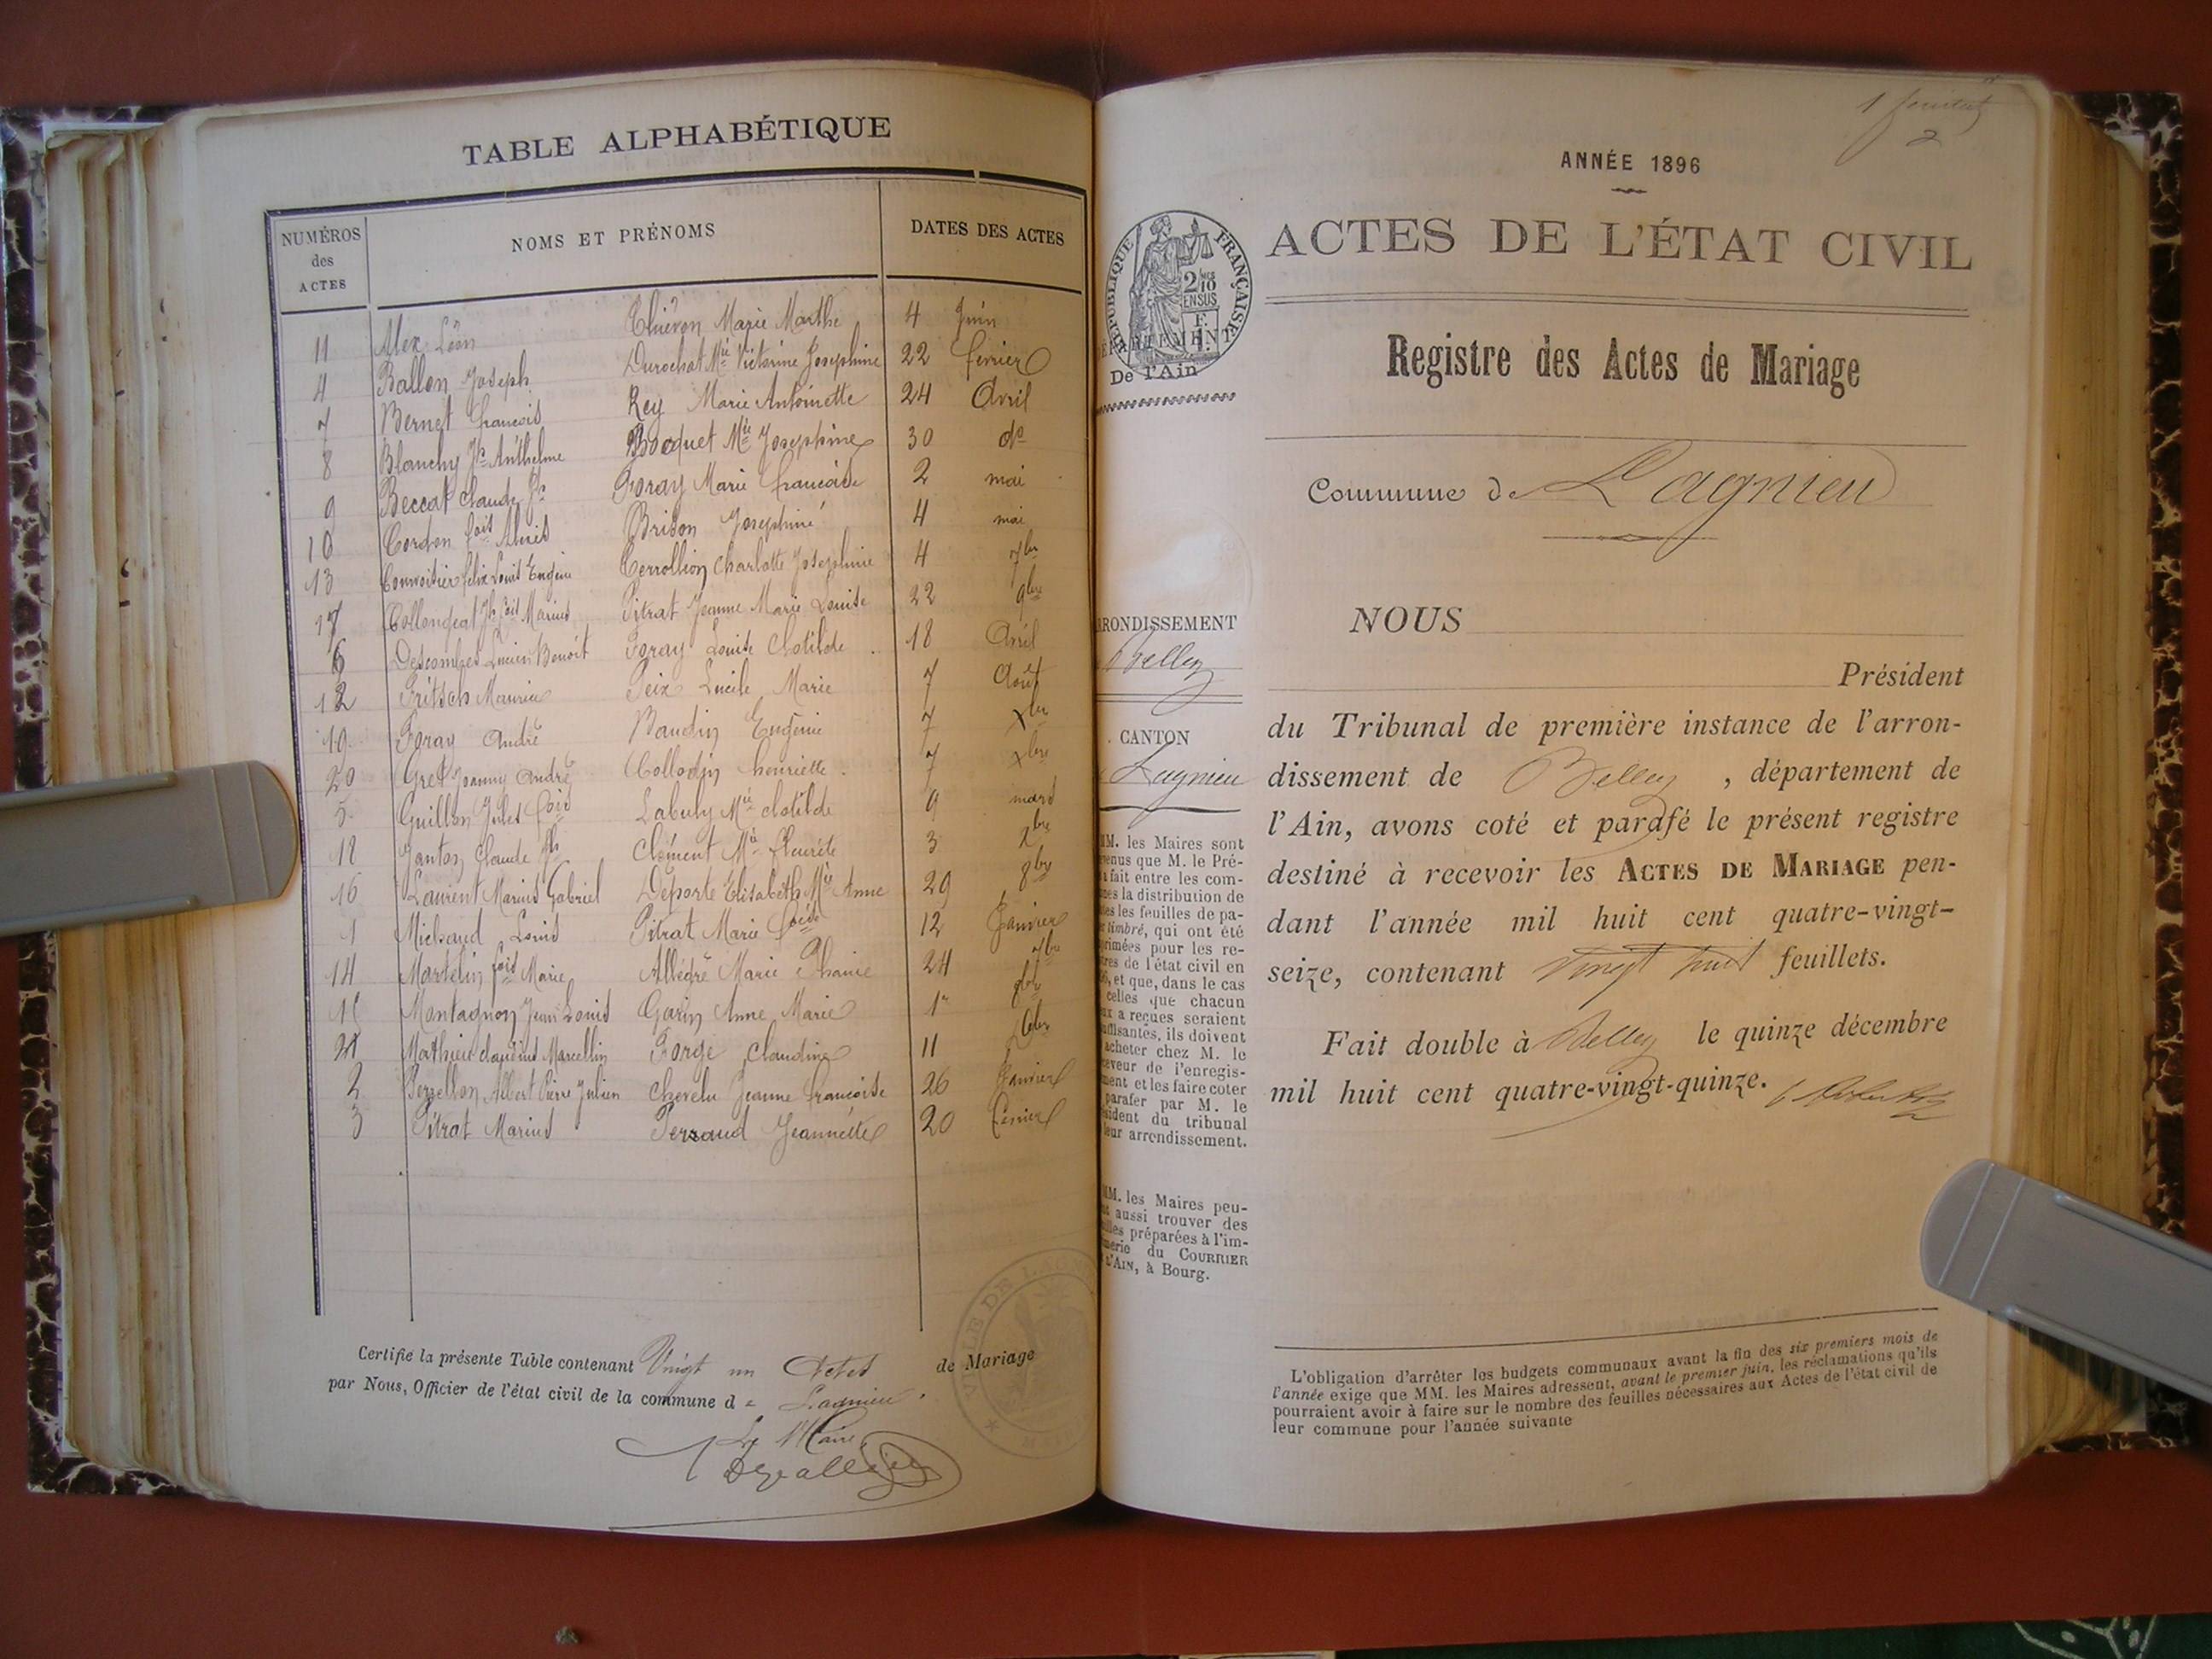 TABLE ALPHABÉTIQUE
NUMÉROS des ACTES
NOMS ET PRÉNOMS
DATES DES ACTES
11 Alex Léon Thiévon Marie Marthe 4 Juin
4 Ballon Joseph Durochat Mie Victorine Josephine 22 fevrier
7 Bernet francois Rey Marie Antoinette 24 Avril
8 Blanchy Jh Anthelme Bocquet Mie Josephine 30 do
9 Beccat Claude Foray Marie francoise 2 mai
10 Cordon fois Brison Josephine 4 mai
13 Convoitier felix Louis Eugène Cerrollion Charlotte Josephine 4 7bre
17 Collongeat Jh fois Marius Pitrat Jeanne Marie Louise 22 9bre
6 Descombes Lucien Benoît Foray Louise Clotilde 18 Avril
12 Fritsch Maurice Peix Lucile Marie 7 Août
19 Foray André Baudin Eugénie 7 Xbre
20 Gret Joanny André Collodin henriette 7 Xbre
5 Guillon Jules fois Labuly Mie clotilde 9 mars
18 Janton Claude Clément Mie fleurète 3 Xbre
16 Laurent Marius Gabriel Déporte Elisabeth Mie Anne 29 8bre
1 Michaud Louis Pitrat Marie 12 Janvier
14 Martelin fois Marie Allégré Marie 24 7bre
15 Montagnon Jean Louis Garin Anne Marie 1er 8bre
21 Mathieu claudius Marcellin Forge Claudine 11
2 Perrellon Albert Pierre Julien Chevelu Jeanne francoise 26 Janvier
3 Pitrat Marius Perraud Jeannette 20 fevrier
Certifié la présente Table contenant Vingt un Actes de Mariage
par Nous, Officier de l'état civil de la commune de Lagnieu.
Le Maire
VILLE DE LAGN
1 feuillet
2
ANNÉE 1896
ACTES DE L'ÉTAT CIVIL
RÉPUBLIQUE FRANÇAISE
De l'Ain
Registre des Actes de Mariage
Commune de Lagnieu
RONDISSEMENT
Belley
CANTON
Lagnieu
MM. les Maires sont
enus que M. le Pré-
a fait entre les com-
es la distribution de
es les feuilles de pa-
timbré, qui ont été
rimées pour les re-
tres de l'état civil en
6, et que, dans le cas
celles que chacun
ux a reçues seraient
uffisantes, ils doivent
acheter chez M. le
ceveur de l'enregis-
ment et les faire coter
parafer par M. le
sident du tribunal
leur arrondissement.
MM. les Maires peu-
nt aussi trouver des
illes préparées à l'im-
merie du COURRIER
L'AIN, à Bourg.
NOUS
Président
du Tribunal de première instance de l'arron-
dissement de Belley, département de
l'Ain, avons coté et parafé le présent registre
destiné à recevoir les ACTES DE MARIAGE pen-
dant l'année mil huit cent quatre-vingt-
seize, contenant vingt huit feuillets.
Fait double à Belley le quinze décembre
mil huit cent quatre-vingt-quinze.
L'obligation d'arrêter les budgets communaux avant la fin des six premiers mois de
l'année exige que MM. les Maires adressent, avant le premier juin, les réclamations qu'ils
pourraient avoir à faire sur le nombre des feuilles nécessaires aux Actes de l'état civil de
leur commune pour l'année suivante